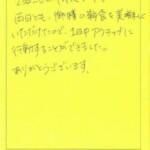 両日とも、御膳の朝食を美味しく
いただけたので、1日中アクティブに
行動することができました。
ありがとうございます。